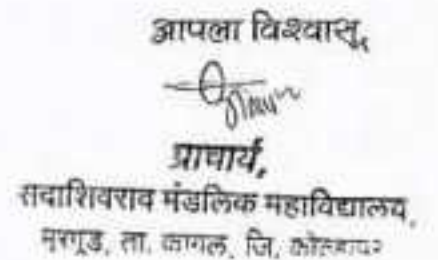 आपला विश्वासू,
प्राचार्य,
सदाशिवराव मंडलिक महाविद्यालय,
मुरगूड, ता. कागल, जि. कोल्हापूर